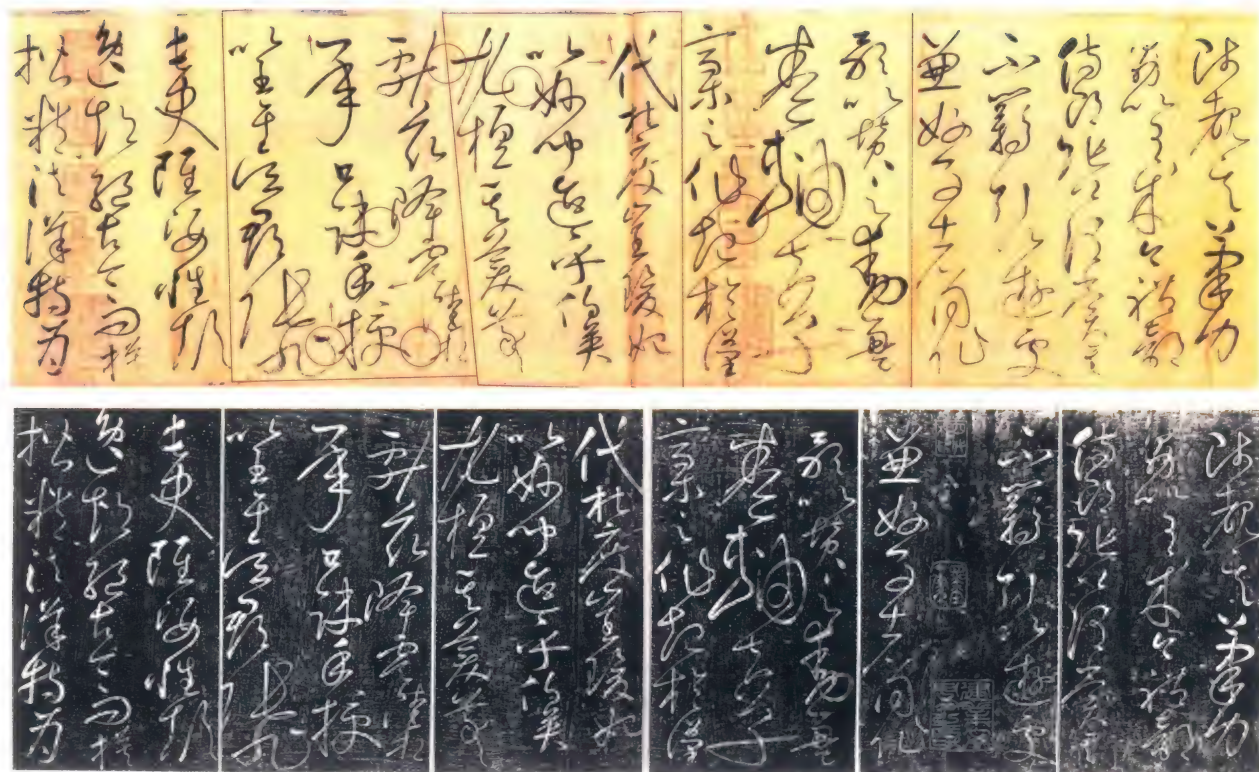 陟覩其筆力
勗以有成今禮部
侍郎張公謂賞其
不羈引以遊處
兼好事者同作
歌以讚之動盈
卷軸夫草
稾之作起於漢
代杜度崔瑗始
以妙聞迨乎伯英
尤擅其美羲
獻茲降虞陸相
承口訣手授
以至于吳郡張旭
長史雖姿性顛
逸超絕古今而模
楷精法詳特為
陟覩其筆力
勗以有成今禮部
侍郎張公謂賞其
不羈引以遊處
兼好事者同作
歌以讚之動盈
卷軸夫草
稾之作起於漢
代杜度崔瑗始
以妙聞迨乎伯英
尤擅其美羲
獻茲降虞陸相
承口訣手授
以至于吳郡張旭
長史雖姿性顛
逸超絕古今而模
楷精法詳特為